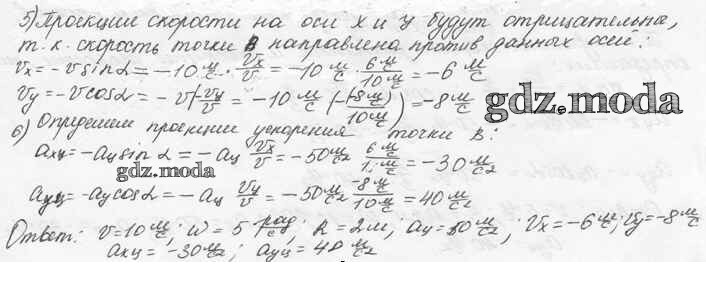 5) Проекции скорости на оси x и y будут отрицательна,
т.к. скорость точки B направлена против данных осей:
Vx = -V sin α = -10 м/с · Vx/V = -10 м/с · 6 м/с / 10 м/с = -6 м/с
Vy = -V cos α = -V(-Vy/V) = -10 м/с (-(-8 м/с) / 10 м/с) = -8 м/с
gdz.moda
6) Определим проекции ускорения точки B:
aхц = -aц sin α = -aц Vx/V = -50 м/с2 · 6 м/с / 1. м/с = -30 м/с2
gdz.moda
aуц = -aц cos α = -aц Vy/V = -50 м/с2 · -8 м/с / 10 м/с = 40 м/с2
Ответ: V=10 м/с; w = 5 рад/с; R = 2м; aц = 50 м/с2; Vx = -6 м/с; Vy = -8 м/с
aхц = -30 м/с2; aуц = 40 м/с2